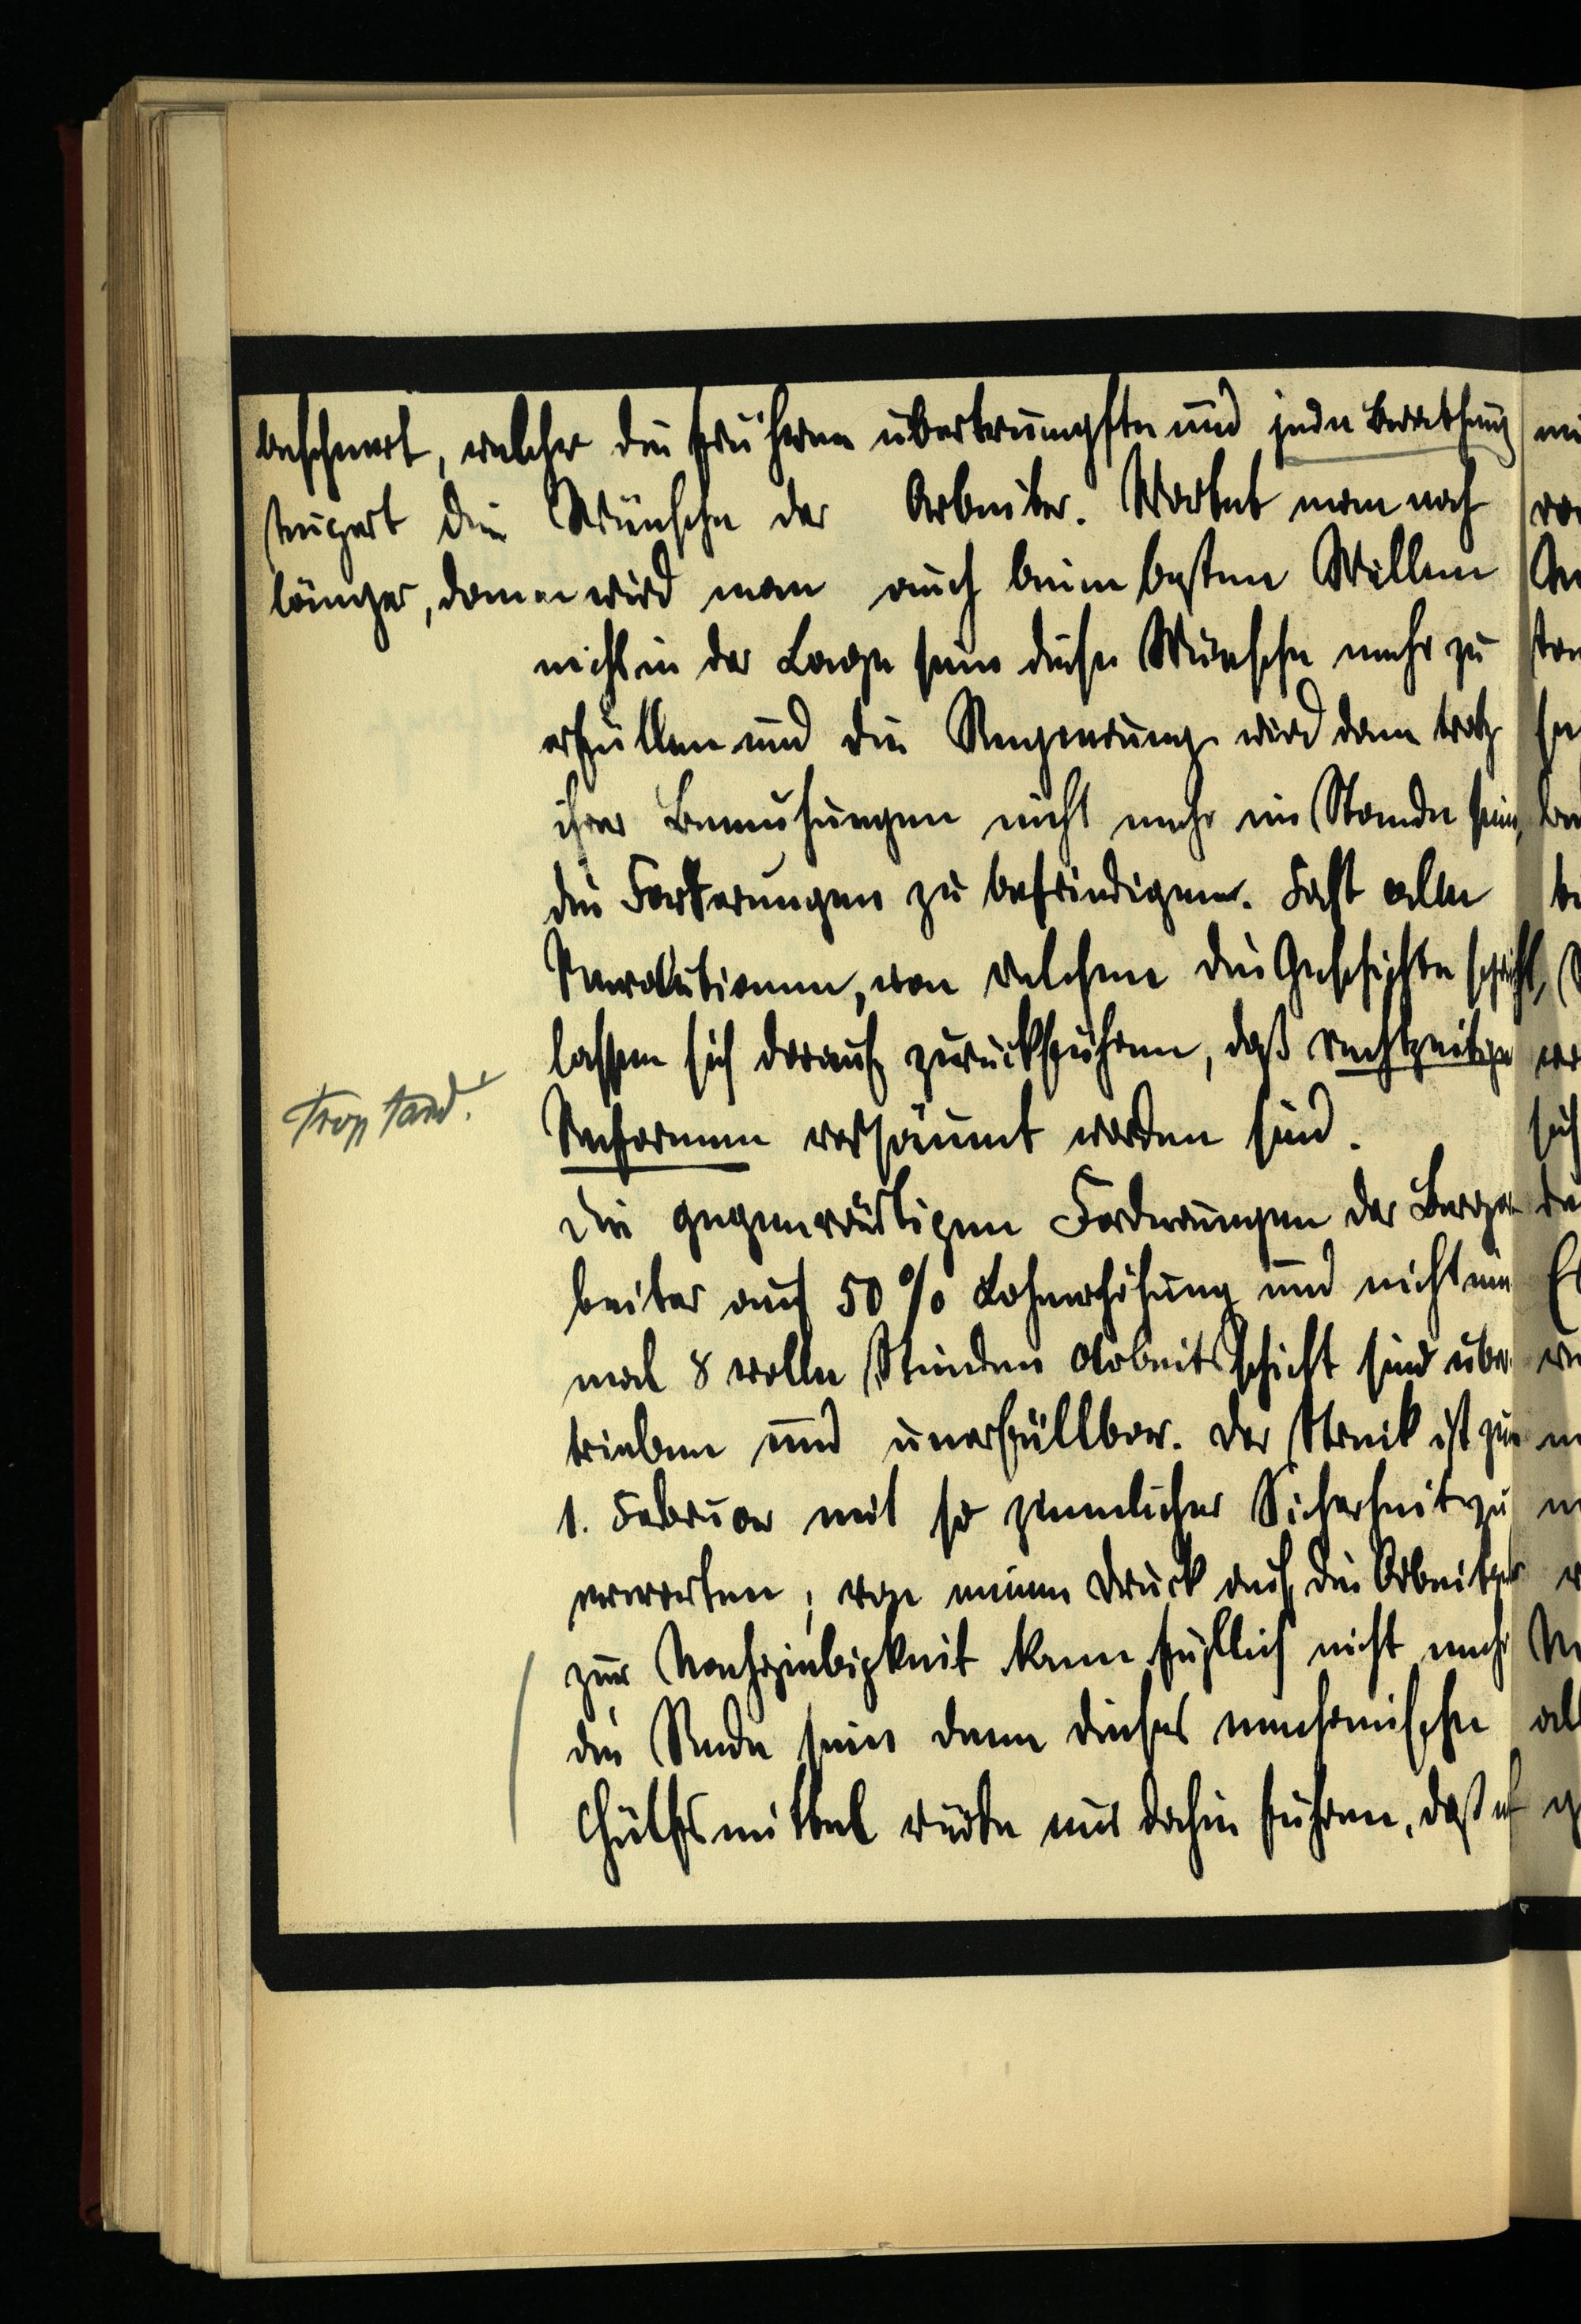 beschwert, welcher die früheren übertrumpfte und jede Berathung
steigert die Wünsche der Arbeiter. Wartet man noch
länger, dann wird man auch beim besten Willen
nicht in der Lage sein diese Wünsche mehr zu
erfüllen und die Regierung wird dann trotz
ihrer Bemühungen nicht mehr im Stande sein,
die Forderungen zu befriedigen. Fast alle
Revolutionen, von welchen die Geschichte spricht,
lassen sich darauf zurückführen, daß rechtzeitige
Trop tard.
Reformen versäumt worden sind.
Die gegenwärtigen Forderungen der Bergar-
beiter auf 50 % Lohnerhöhung und nicht ein
mal 8 volle Stunden Arbeitsschicht sind über
trieben und unerfüllbar. Der Streik ist zum
1. Februar mit so ziemlicher Sicherheit zu
erwarten; von einem Druck auf die Arbeitgeber
zur Nachgiebigkeit kann füglich nicht mehr
die Rede sein denn dieses mechanische
Hülfsmittel würde nur dahin führen, daß